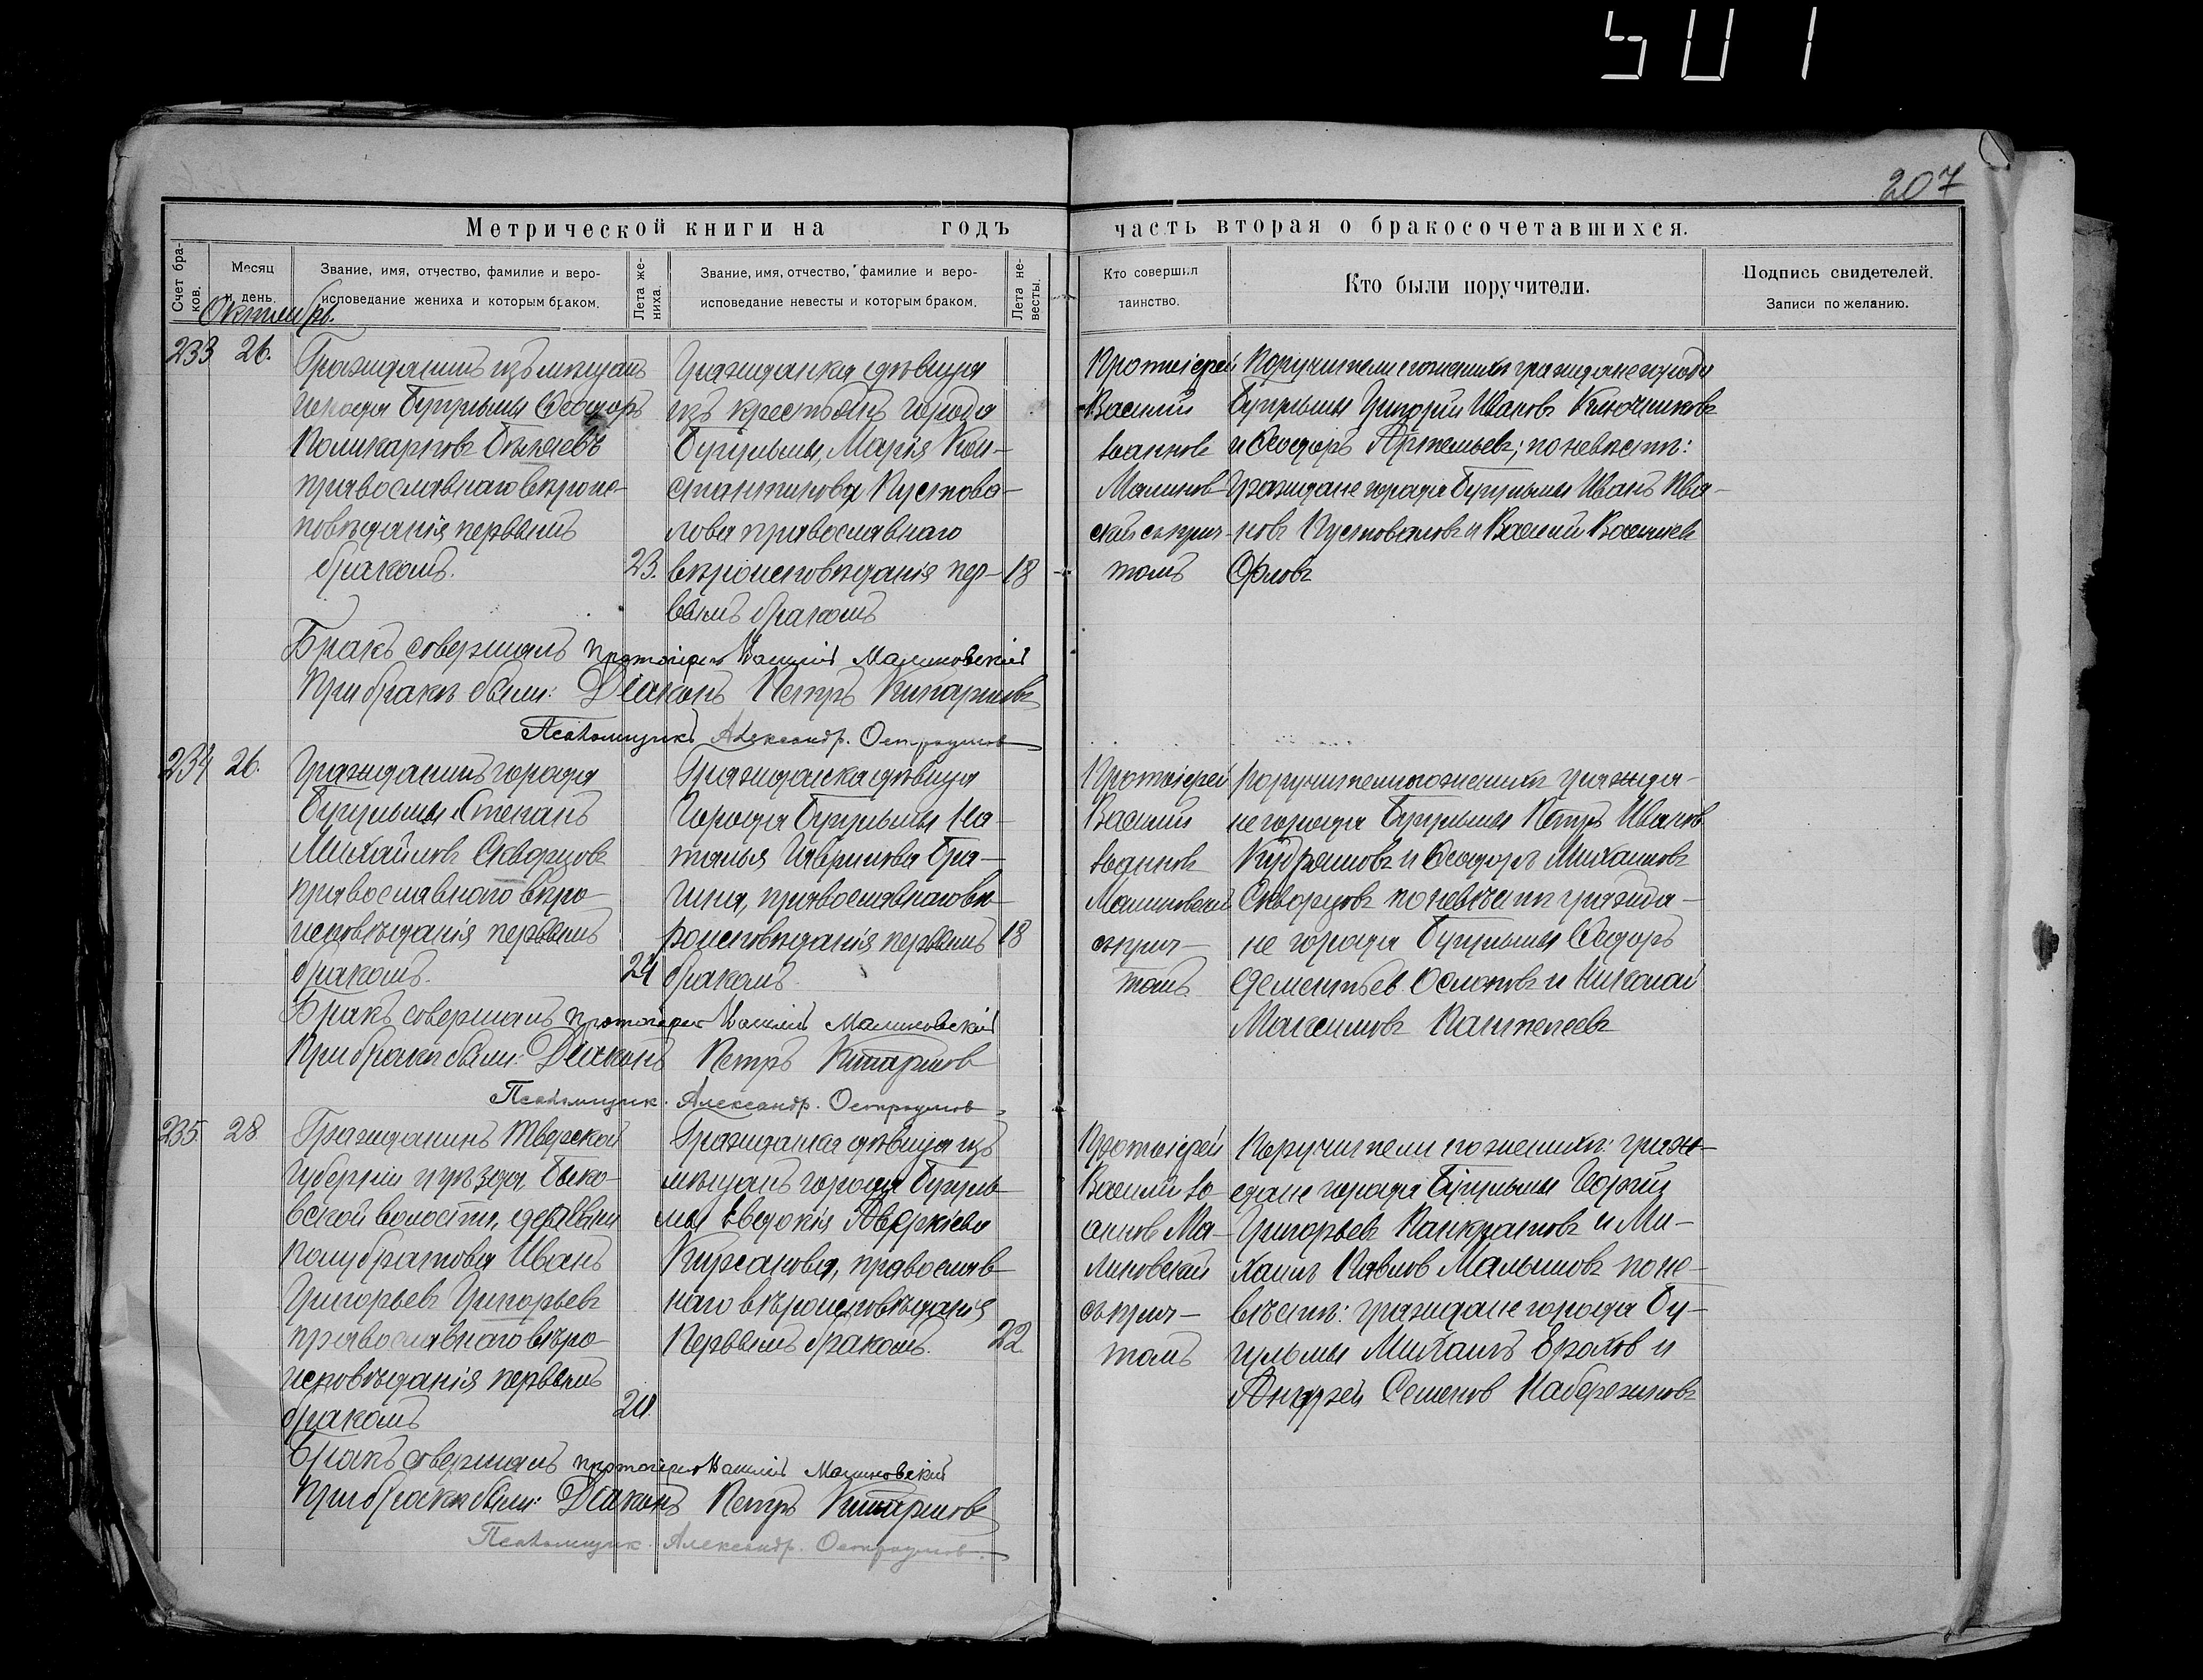 501
207
Метрической книги на годъ часть вторая о бракосочетавшихся.
Счет бра-
ков.
Месяц
и день.
Звание, имя, отчество, фамилие и веро-
исповедание жениха и которым браком.
Лета же-
ниха.
Звание, имя, отчество, фамилие и веро-
исповедание невесты и которым браком.
Лета не-
весты.
Кто совершил
таинство.
Кто были поручители.
Подпись свидетелей.
Записи по желанию.
Октябрь.
233
26.
Гражданинъ изъ мещанъ
города Бугульмы Ѳеодоръ
Поликарповъ Беляевъ
православнаго вероис-
поведанія первымъ
бракомъ.
23.
Гражданка девица
изъ крестьянъ города
Бугульмы, Марія Кон-
стантинова Пустова-
лова православнаго
вероисповеданія пер-
вымъ бракомъ
18
Протоіерей
Василий
Іоаннов
Малинов-
ский съ прич-
томъ
Поручители по женихе граждане города
Бугульмы Григорий Иванов Ключников
и Ѳеодоръ Артемьев; по невесте:
Граждане города Бугульмы Иванъ Ива-
нов Пустовалов и Василий Васильев
Орлов
Бракъ совершалъ протоіерей Василій Малиновскій
При браке были: Діаконъ Петръ Кипарисов
Псаломщикъ Александр. Остроумов
234
26.
Гражданинъ города
Бугульмы Степанъ
Михайлов Скворцов
православного веро-
исповеданія первымъ
бракомъ.
24
Гражданка девица
города Бугульмы На-
талья Гаврилова Бра-
гина, православнаго ве-
роисповеданія первымъ
бракомъ.
18
Протоіерей
Василий
Іоаннов
Малиновский
съ прич-
томъ.
Поручители по женихе гражда-
не города Бугульмы Петръ Иванов
Кудряшов и Ѳеодоръ Михаилов
Скворцов по невесте гражда-
не города Бугульмы Ѳеодоръ
Дементьев Ослопов и Николай
Максимов Пантелеев
Бракъ совершалъ протоіерей Василій Малиновскій
При браке были: Діаконъ Петръ Кипарисов
Псаломщик. Александр. Остроумов
235
28
Гражданинъ Тверской
Губернии и уезда, Быко-
вской волости, деревни
Полубратова Иванъ
Григорьев Григорьев
православнаго веро-
исповеданія первымъ
бракомъ
20.
Гражданка девица изъ
мещанъ города Бугуль-
мы Евдокія Аверкіева
Кирсанова, православ-
наго вероисповеданія
первымъ бракомъ.
22
Протоіерей
Василий Іо-
аннов Ма-
линовский
съ прич-
томъ
Поручители по женихе: граж-
дане города Бугульмы Георгий
Григорьев Панкратов и Ми-
хаилъ Павлов Малышов по не-
весте: граждане города Бу-
гульмы Михаилъ Ерахов и
Андрей Семенов Набережнов
Бракъ совершалъ протоіерей Василій Малиновскій
При браке были: Діаконъ Петръ Кипарисов
Псаломщик. Александр. Остроумов.